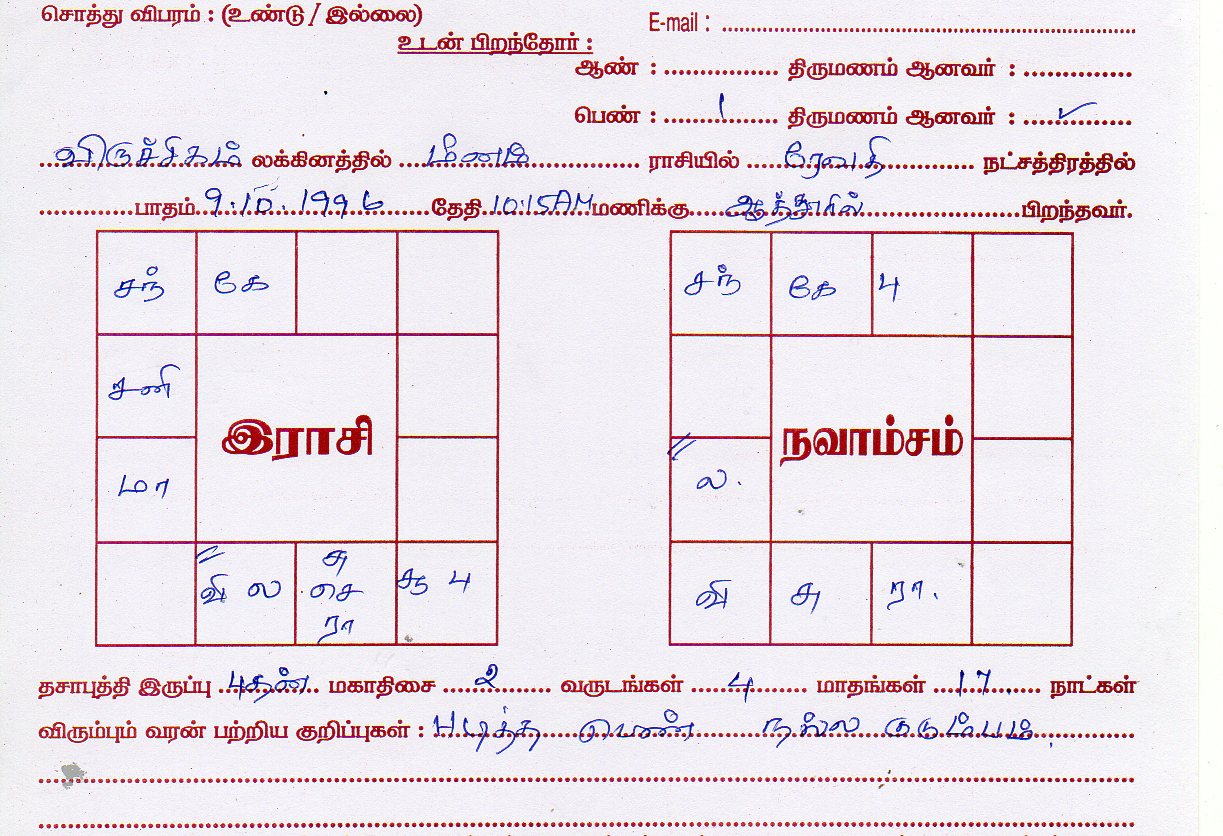 சொத்து விபரம் : (உண்டு / இல்லை)
E-mail : ..........
உடன் பிறந்தோர் :
ஆண் : .......... திருமணம் ஆனவர் : ..........
பெண் : ..... 1 ..... திருமணம் ஆனவர் : ..... ✓ .....
விருச்சிகம் லக்கினத்தில் மீனம் ராசியில் ரேவதி நட்சத்திரத்தில்
.......... பாதம் 9.10.1996 தேதி 10:15AM மணிக்கு ஆத்தூரில் பிறந்தவர்.
சந் கே சந் கே பு
சனி
இராசி நவாம்சம்
மா ல.
வி ல சு செ ரா பு வி சு ரா.
தசாபுத்தி இருப்பு புதன் மகாதிசை 2 வருடங்கள் 4 மாதங்கள் 17 நாட்கள்
விரும்பும் வரன் பற்றிய குறிப்புகள் : படித்த பெண் நல்ல குடும்பம்.